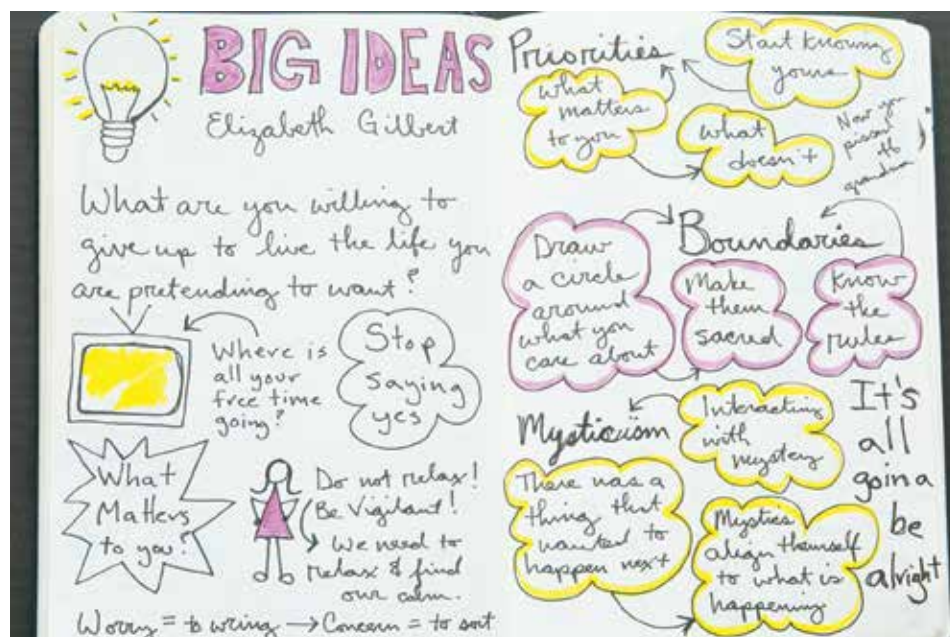 BIG IDEAS
Elizabeth Gilbert
What are you willing to
give up to live the life you
are pretending to want?
Where is
all your
free time
going?
Stop
saying
yes
What
Matters
to you?
Do not relax!
Be Vigilant!
We need to
relax & find
our calm.
Worry = to wring → Concern = to sort
Priorities
Start knowing
yours
What
matters
to you
What
doesn't
Now you
pissed
off
grandma
Boundaries
Draw
a circle
around
what you
care about
Make
them
sacred
Know
the
rules
Mysticism
Interacting
with
mystery
There was a
thing that
wanted to
happen next
Mystics
align themself
to what is
happening
It's
all
goin a
be
alright